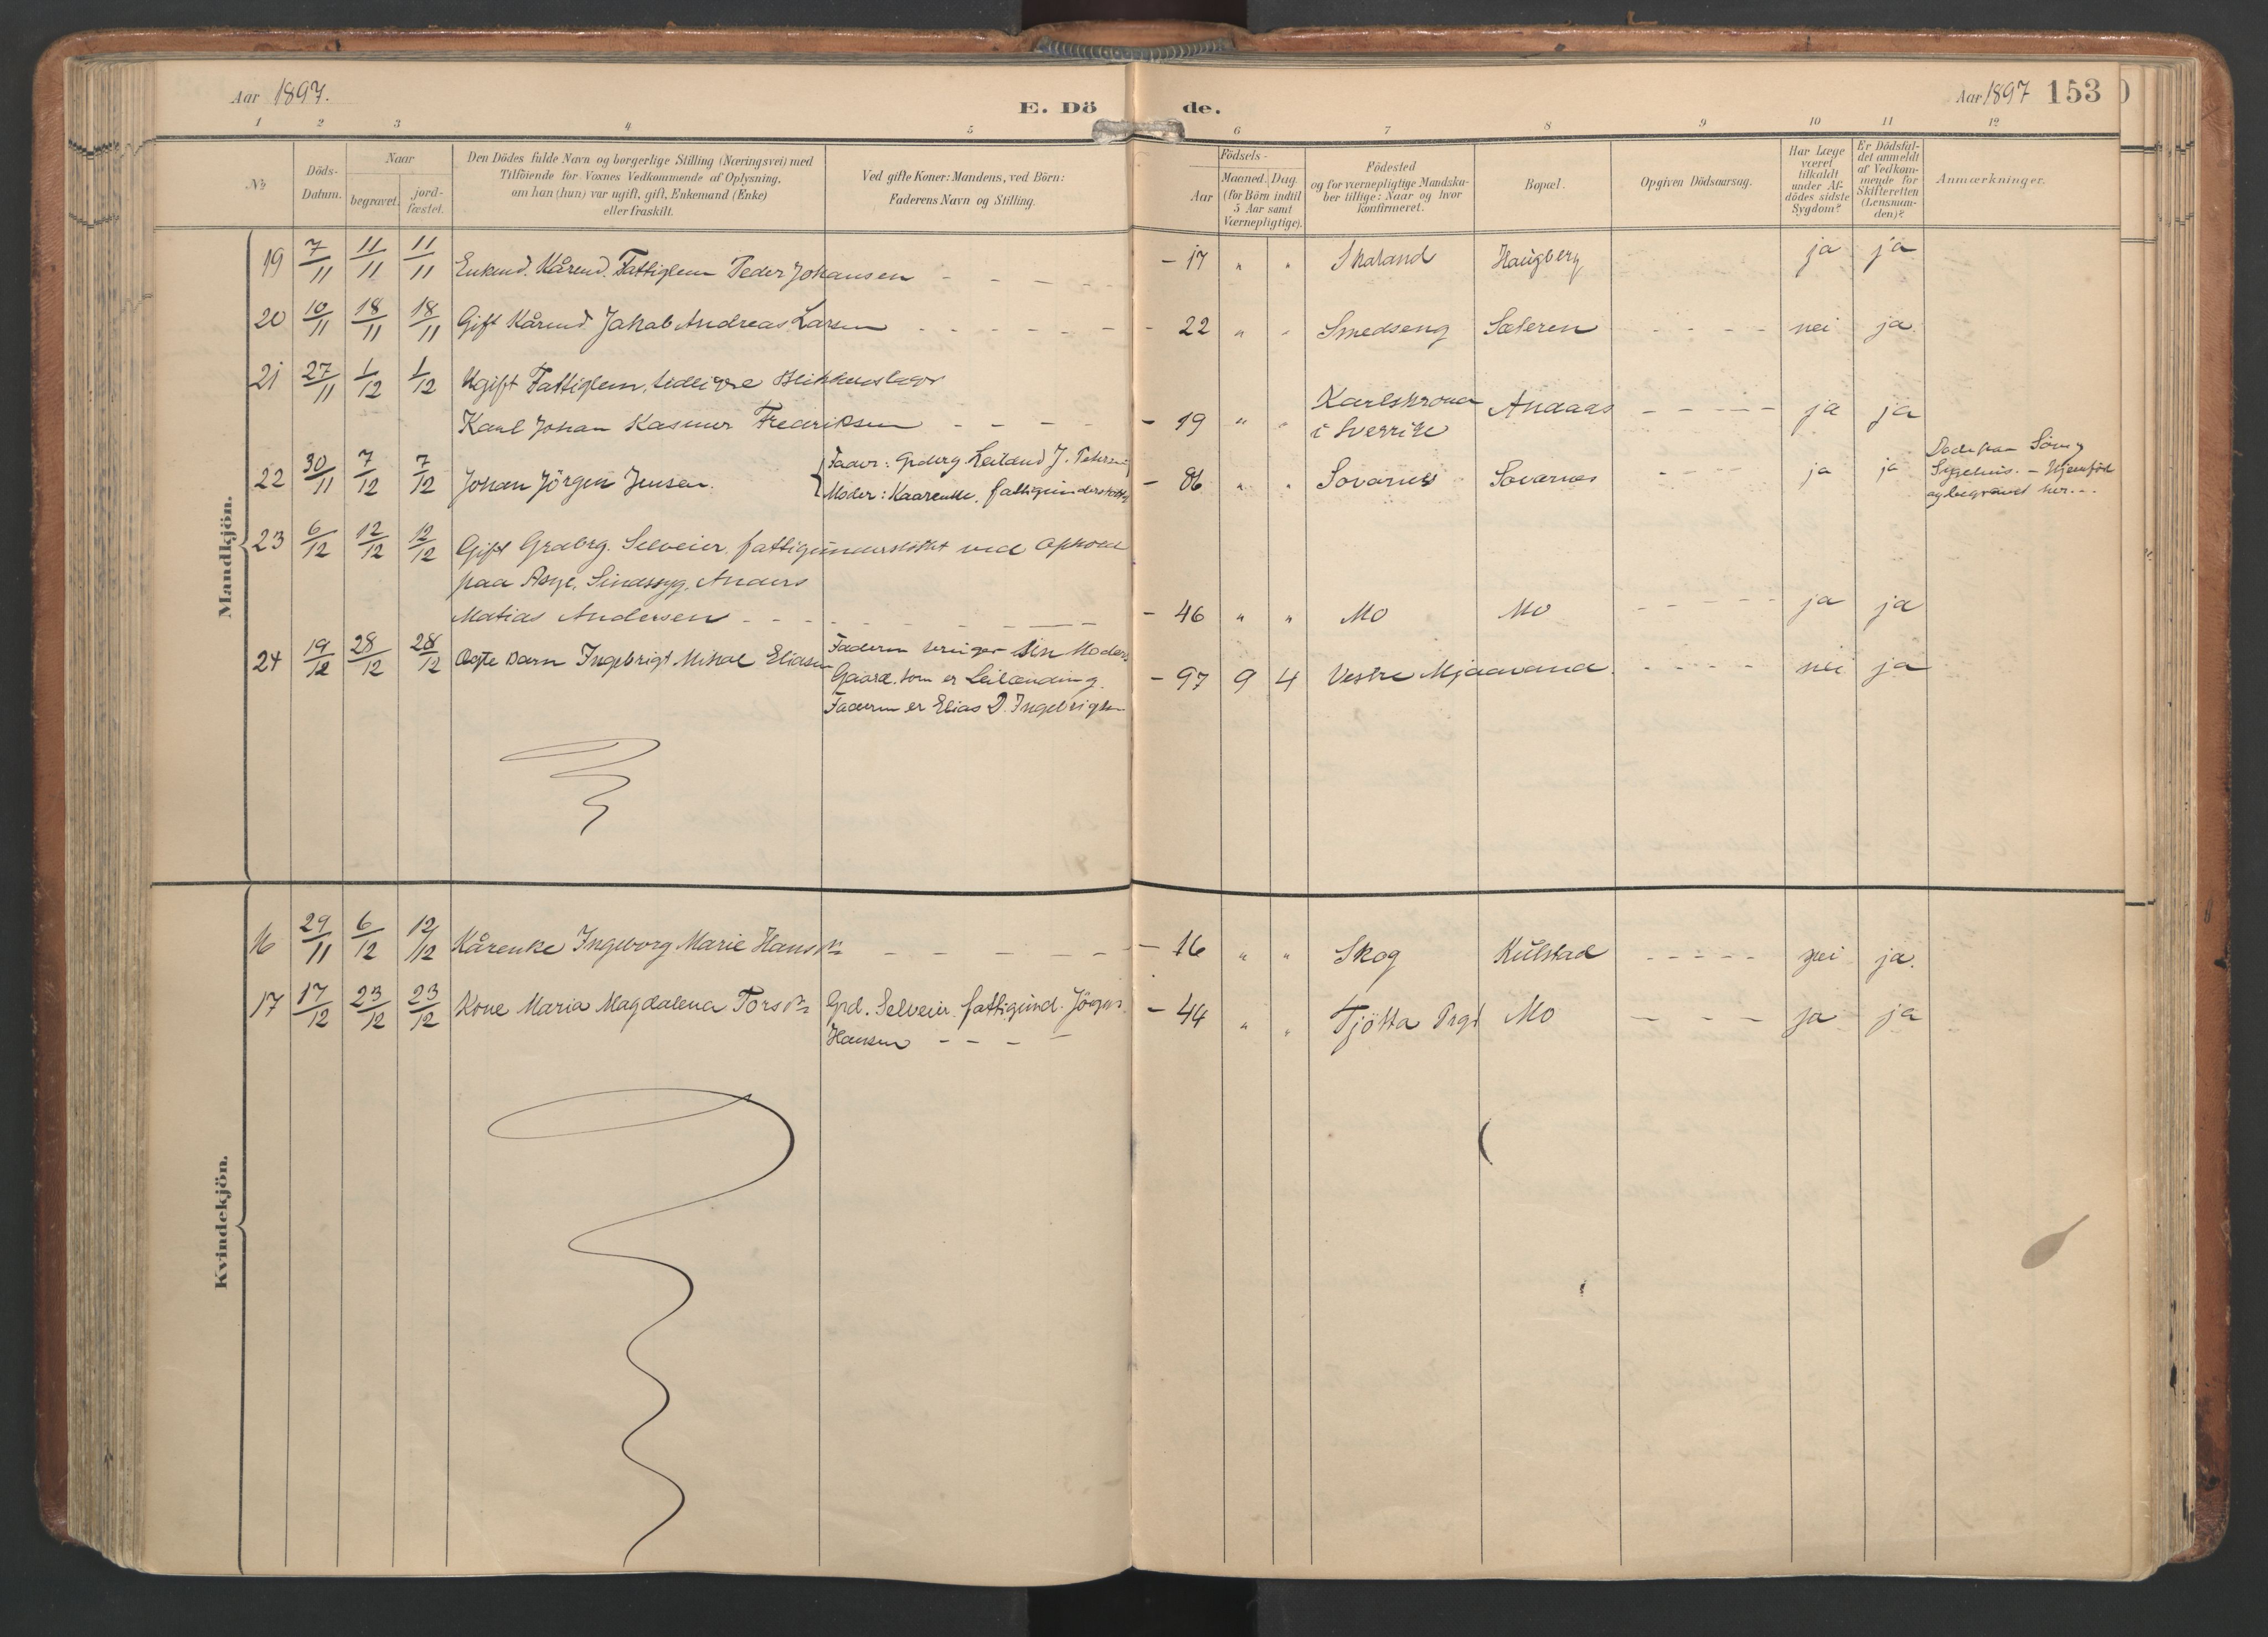 Aar 1897.
E. Dö de.
Aar 1897 153
1 2 3 4 5 6 7 8 9 10 11 12
No
Döds-
Datum.
Naar
begravet.
jord-
fæstet.
Den Dödes fulde Navn og borgerlige Stilling (Næringsvei) med
Tilföiende for Voxnes Vedkommende af Oplysning,
om han (hun) var ugift, gift, Enkemand (Enke)
eller fraskilt.
Ved gifte Koner: Mandens, ved Börn:
Faderens Navn og Stilling.
Födsels-
Aar
Maaned. Dag
(for Börn indtil
5 Aar samt
Værnepligtige).
Födested
og for værnepligtige Mandska-
ber tillige: Naar og hvor
konfirmeret.
Bopæl.
Opgiven Dödsaarsag.
Har Læge
været
tilkaldt
under Af-
dödes sidste
Sygdom?
Er Dödsfal-
det anmeldt
af Vedkom-
mende for
Skifteretten
(Lensman-
den)?
Anmærkninger.
Mandkjön.
19 7/11 11/11 11/11 Enkmd. Kårmd. Fattiglem Peder Johansen - - - - - 17 " " Skaland Haugberg ja ja
20 10/11 18/11 18/11 Gift Kårmd. Jakob Andreas Larsen - - - - - 22 " " Smedseng Sæteren - - - - nei ja
21 27/11 1/12 1/12 Ugift Fattiglem, tidligere Blikkenslager
Karl Johan Kasmer Fredriksen - - - - 19 " " Karlskrona
i Sverrike Andaas - - - - ja ja
22 30/11 7/12 7/12 Johan Jörgen Jensen. Fader: Grdbrg. Leilænd J. Petersen
Moder: Kaarenke, fattigunderstöttet - 86 " " Sovarnes Sovarnes - - - - ja ja
Döde paa
Sygehus. - Hjemfört
og begravet her. -
23 6/12 12/12 12/12 Gift Grdbrg. Selveier, fattigunderstöttet ved Ophold
paa Asyl, Sindssyg, Anders
Matias Andersen - - - - - 46 " " Mo Mo - - - - ja ja
24 19/12 28/12 28/12 Ægte Barn Ingebrigt Mikal Eliasen Faderen bruger sin Moders
Gaard, som er Leilænding.
Faderen er Elias D. Ingebrigtsen - 97 9 4 Vestre Mjaavand. - - - - nei ja
Kvindekjön.
16 29/11 6/12 12/12 Kårenke Ingeborg Marie Hansdr - - - - - 16 " " Skog Kulstad - - - - - nei ja.
17 17/12 23/12 23/12 Kone Maria Magdalena Torsdr Grd. Selveier, fattigund. Jörgen
Hansen - - - - 44 " " Tjötta Prgd Mo - - - ja ja